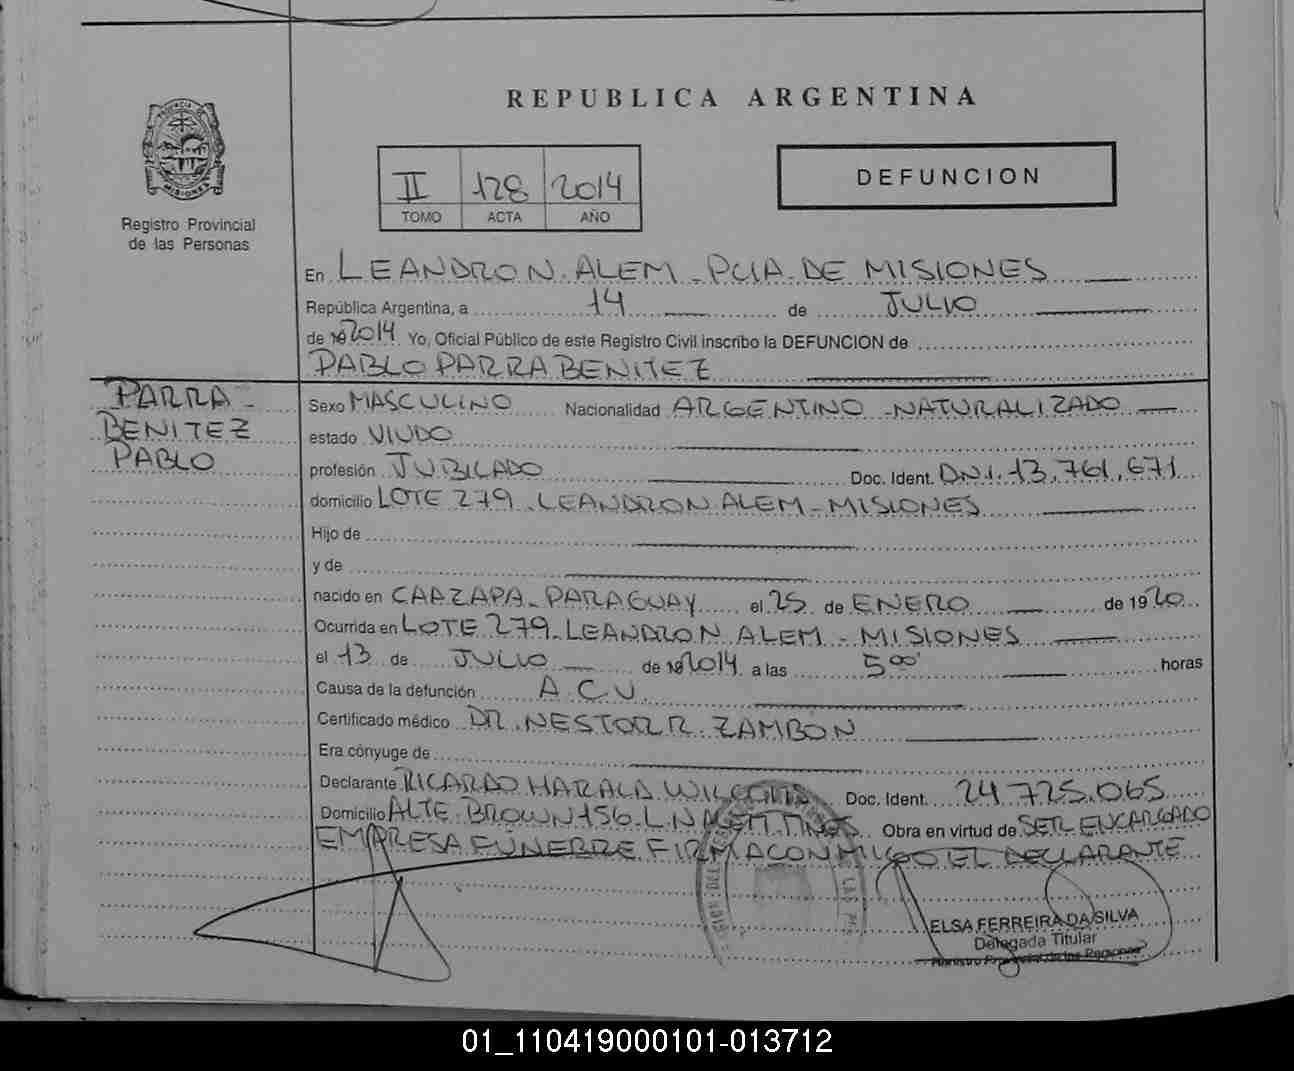 REPUBLICA ARGENTINA
PROVINCIA DE
MISIONES
Registro Provincial
de las Personas
II 128 2014
TOMO ACTA AÑO
DEFUNCION
En LEANDRO N. ALEM - PCIA. DE MISIONES
República Argentina, a 14 de JULIO
de 2014. Yo, Oficial Público de este Registro Civil inscribo la DEFUNCION de
PABLO PARRA BENITEZ
PARRA
BENITEZ
PABLO
Sexo MASCULINO Nacionalidad ARGENTINO - NATURALIZADO
estado VIUDO
profesión JUBILADO Doc. Ident. DNI. 13,761,671
domicilio LOTE 279 - LEANDRO N. ALEM - MISIONES
Hijo de
y de
nacido en CAAZAPA - PARAGUAY el 25 de ENERO de 1920
Ocurrida en LOTE 279 - LEANDRO N ALEM - MISIONES
el 13 de JULIO de 2014 a las 5 00 horas
Causa de la defunción A.C.V.
Certificado médico DR. NESTOR R. ZAMBON
Era cónyuge de
Declarante RICARDO HARALD Doc. Ident. 24.725.065
Domicilio ALTE BROWN 156. L.N Obra en virtud de SER ENCARGADO
EMPRESA FUNEBRE FIRMA CONMIGO EL DECLARANTE
ELSA FERREIRA DA SILVA
Delegada Titular
Registro Provincial de las Personas
01_110419000101-013712